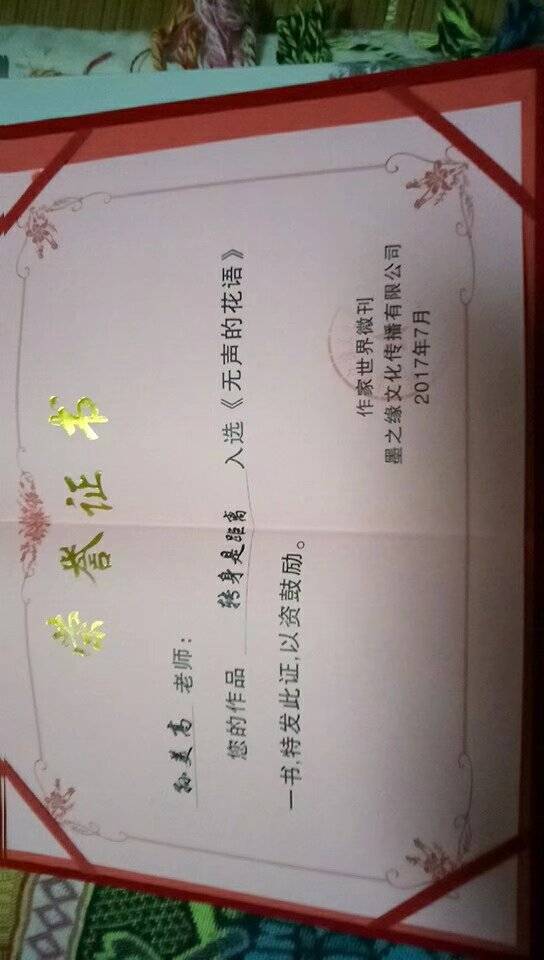 荣誉证书
孙美高 老师：
您的作品 转身是距离 入选《无声的花语》
一书,特发此证,以资鼓励。
作家世界微刊
墨之缘文化传播有限公司
2017年7月